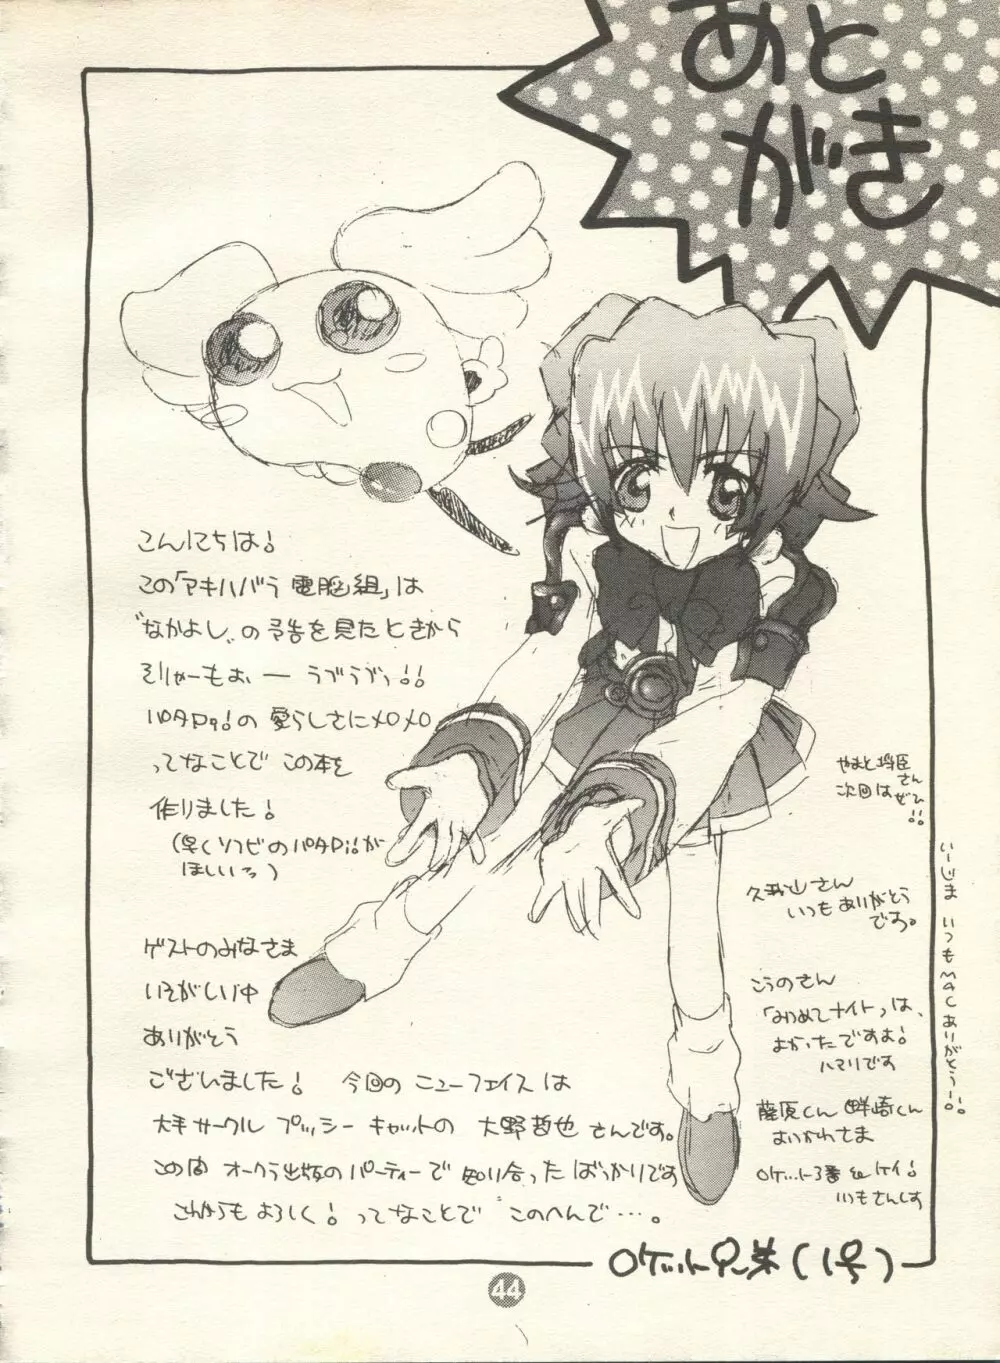 あと
がき
こんにちは!
この「アキハバラ電脳組」は
"なかよし"の予告を見たときから
そりゃーもぉ、ー ラブラブっ!!
パタPi!の愛らしさにメロメロ
ってなことで この本を
作りました!
(早くソフビのパタPi!が
ほしいっ)
ゲストのみなさま
いそがしい中
ありがとう
ございました! 今回のニューフェイスは
大手サークル プッシーキャットの 大野哲也さんです。
この間 オークラ出版のパーティーで 知り合ったばっかりです
こんごもよろしく! ってなことで このへんで…。
やまと将臣さん
次回はぜひ!!
久我山さん
いつもありがとう
です。
こうのさん
「みつめてナイト」は、
よかったですよ!
ハマリです
藤原くん 畔崎くん
おつかれさま
ロケット3番&ケイ!
いつもさんしす
いーじま いつもMACありがとうー!!
ロケット兄弟(1号)
44